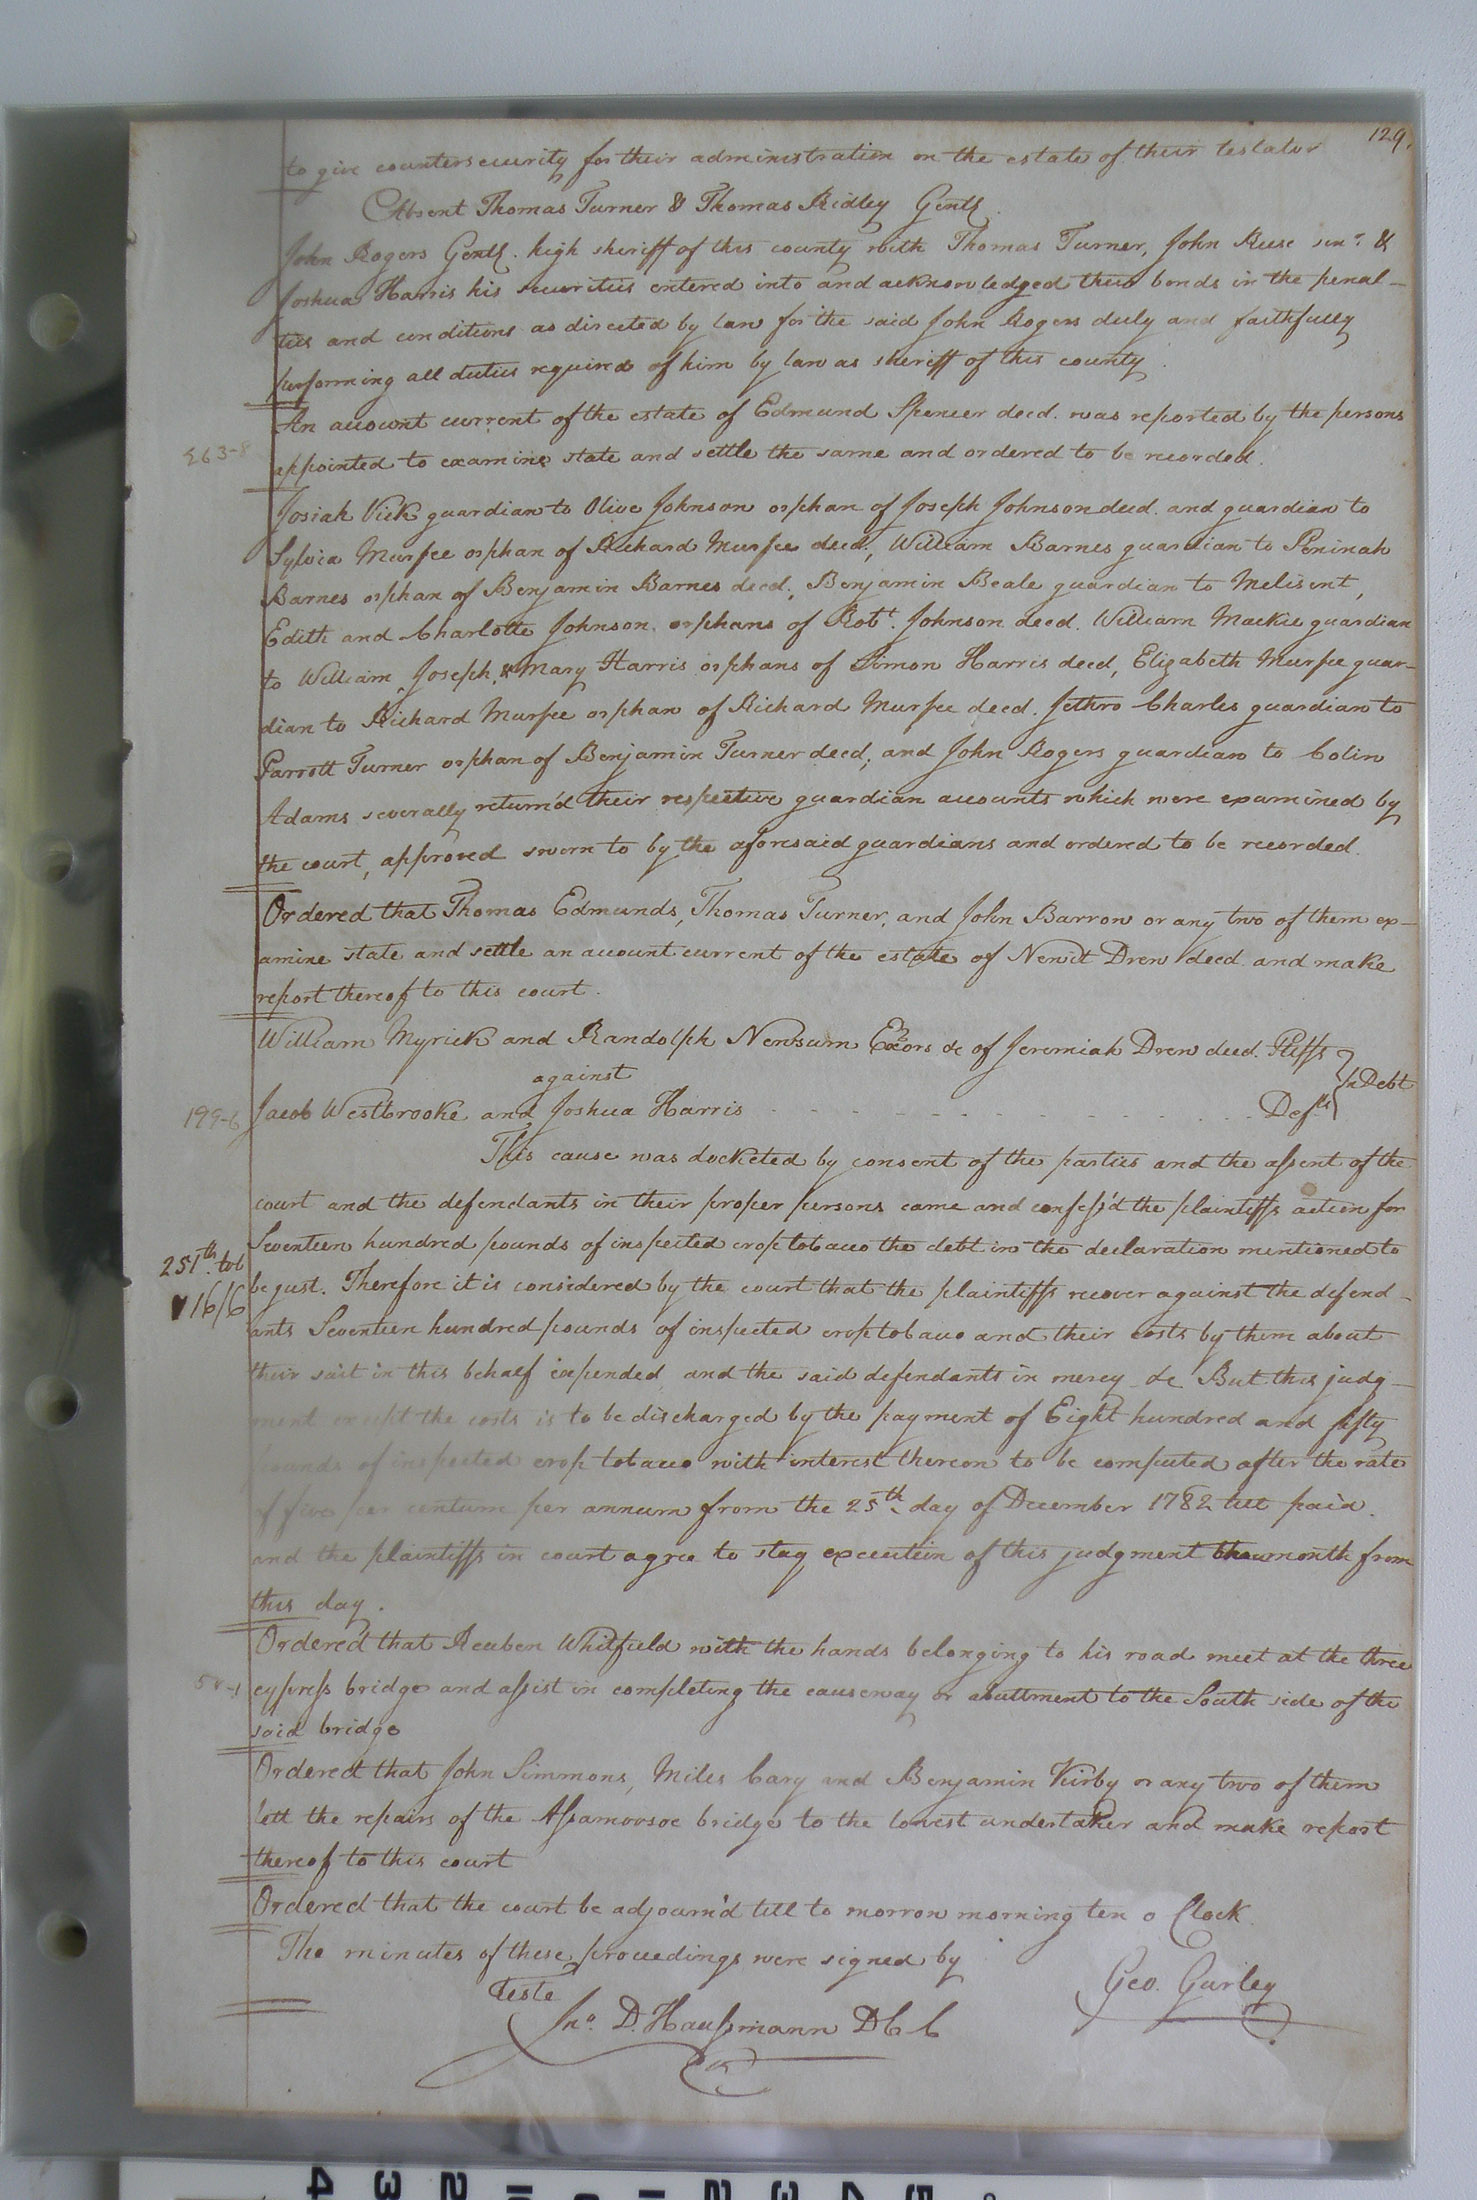 129.
to give countersecurity for their administration on the estate of their testator
Absent Thomas Turner & Thomas Ridley Gentl.
John Rogers Gentl. high sheriff of this county with Thomas Turner, John Reese senr. &
Joshua Harris his securities entered into and acknowledged their bonds in the penal-
ties and conditions as directed by law for the said John Rogers duly and faithfully
performing all duties required of him by law as sheriff of this county.
An account current of the estate of Edmund Spencer decd. was reported by the persons
appointed to examine state and settle the same and ordered to be recorded.
Josiah Vick guardian to Olive Johnson orphan of Joseph Johnson decd. and guardian to
Sylvia Murfee orphan of Richard Murfee decd., William Barnes guardian to Peninah
Barnes orphan of Benjamin Barnes decd., Benjamin Beale guardian to Melisent,
Edith and Charlotte Johnson orphans of Robt. Johnson decd. William Mackie guardian
to William, Joseph, & Mary Harris orphans of Simon Harris decd, Elizabeth Murfee guar-
dian to Richard Murfee orphan of Richard Murfee decd. Jethro Charles guardian to
Parrott Turner orphan of Benjamin Turner decd, and John Rogers guardian to Colin
Adams severally return'd their respective guardian accounts which were examined by
the court, approved sworn to by the aforesaid guardians and ordered to be recorded.
Ordered that Thomas Edmunds, Thomas Turner, and John Barrow or any two of them ex-
amine state and settle an account current of the estate of Newit Drew decd. and make
report thereof to this court.
William Myrick and Randolph Newsum Exors &c of Jeremiah Drew decd. Pltffs
against
In Debt
Jacob Westbrooke and Joshua Harris Defts
This cause was docketed by consent of the parties and the assent of the
court and the defendants in their proper persons came and confess'd the plaintiffs action for
Seventeen hundred pounds of inspected crop tobacco the debt in the declaration mentioned to
251th. tob
be just. Therefore it is considered by the court that the plaintiffs recover against the defend-
16/6
ants Seventeen hundred pounds of inspected crop tobacco and their costs by them about
their suit in this behalf expended and the said defendants in mercy &c But this judg-
ment except the costs is to be discharged by the payment of Eight hundred and fifty
pounds of inspected crop tobacco with interest thereon to be computed after the rate
of five per centum per annum from the 25th day of December 1782 till paid.
and the plaintiffs in court agree to stay execution of this judgment month from
this day.
Ordered that Reuben Whitfield with the hands belonging to his road meet at the three
cypress bridge and assist in completing the causeway or abuttment to the South side of the
said bridge
Ordered that John Simmons, Miles Cary and Benjamin Kirby or any two of them
lett the repairs of the Assamoosoc bridge to the lowest undertaker and make report
thereof to this court
Ordered that the court be adjourn'd till to morrow morning ten o Clock.
The minutes of these proceedings were signed by
Geo. Gurley
Teste
Jno. D. Haussmann D C C